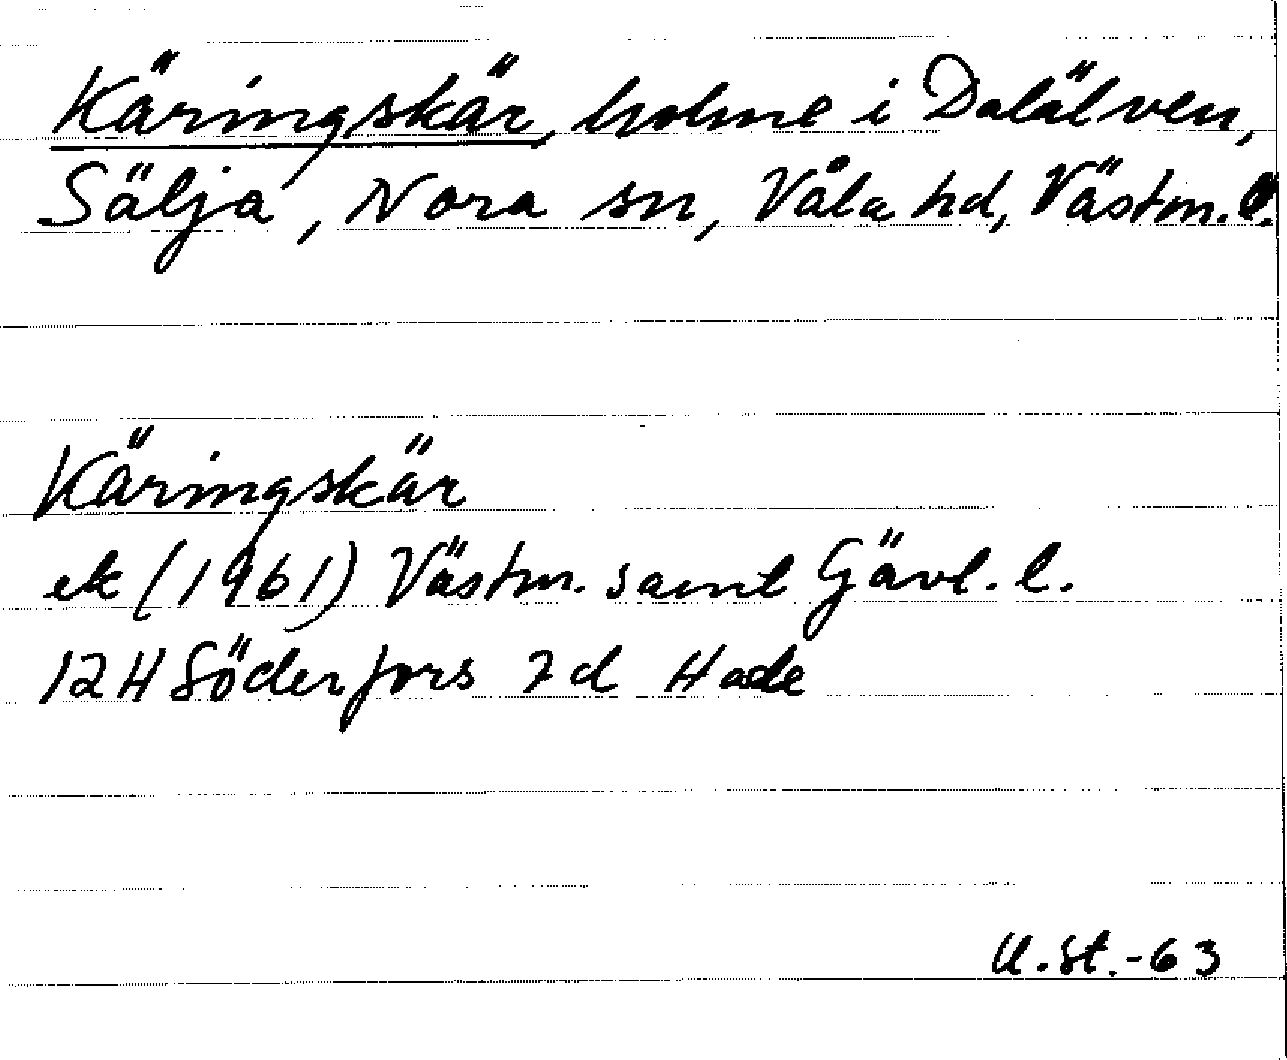 Käringskär, holme i Dalälven,
Sälja, Nora sn, Våla hd, Västm. l.
Käringskär
ek (1961) Västm. samt Gävl. l.
12H Söderfors 7d Hade
U.St.-63